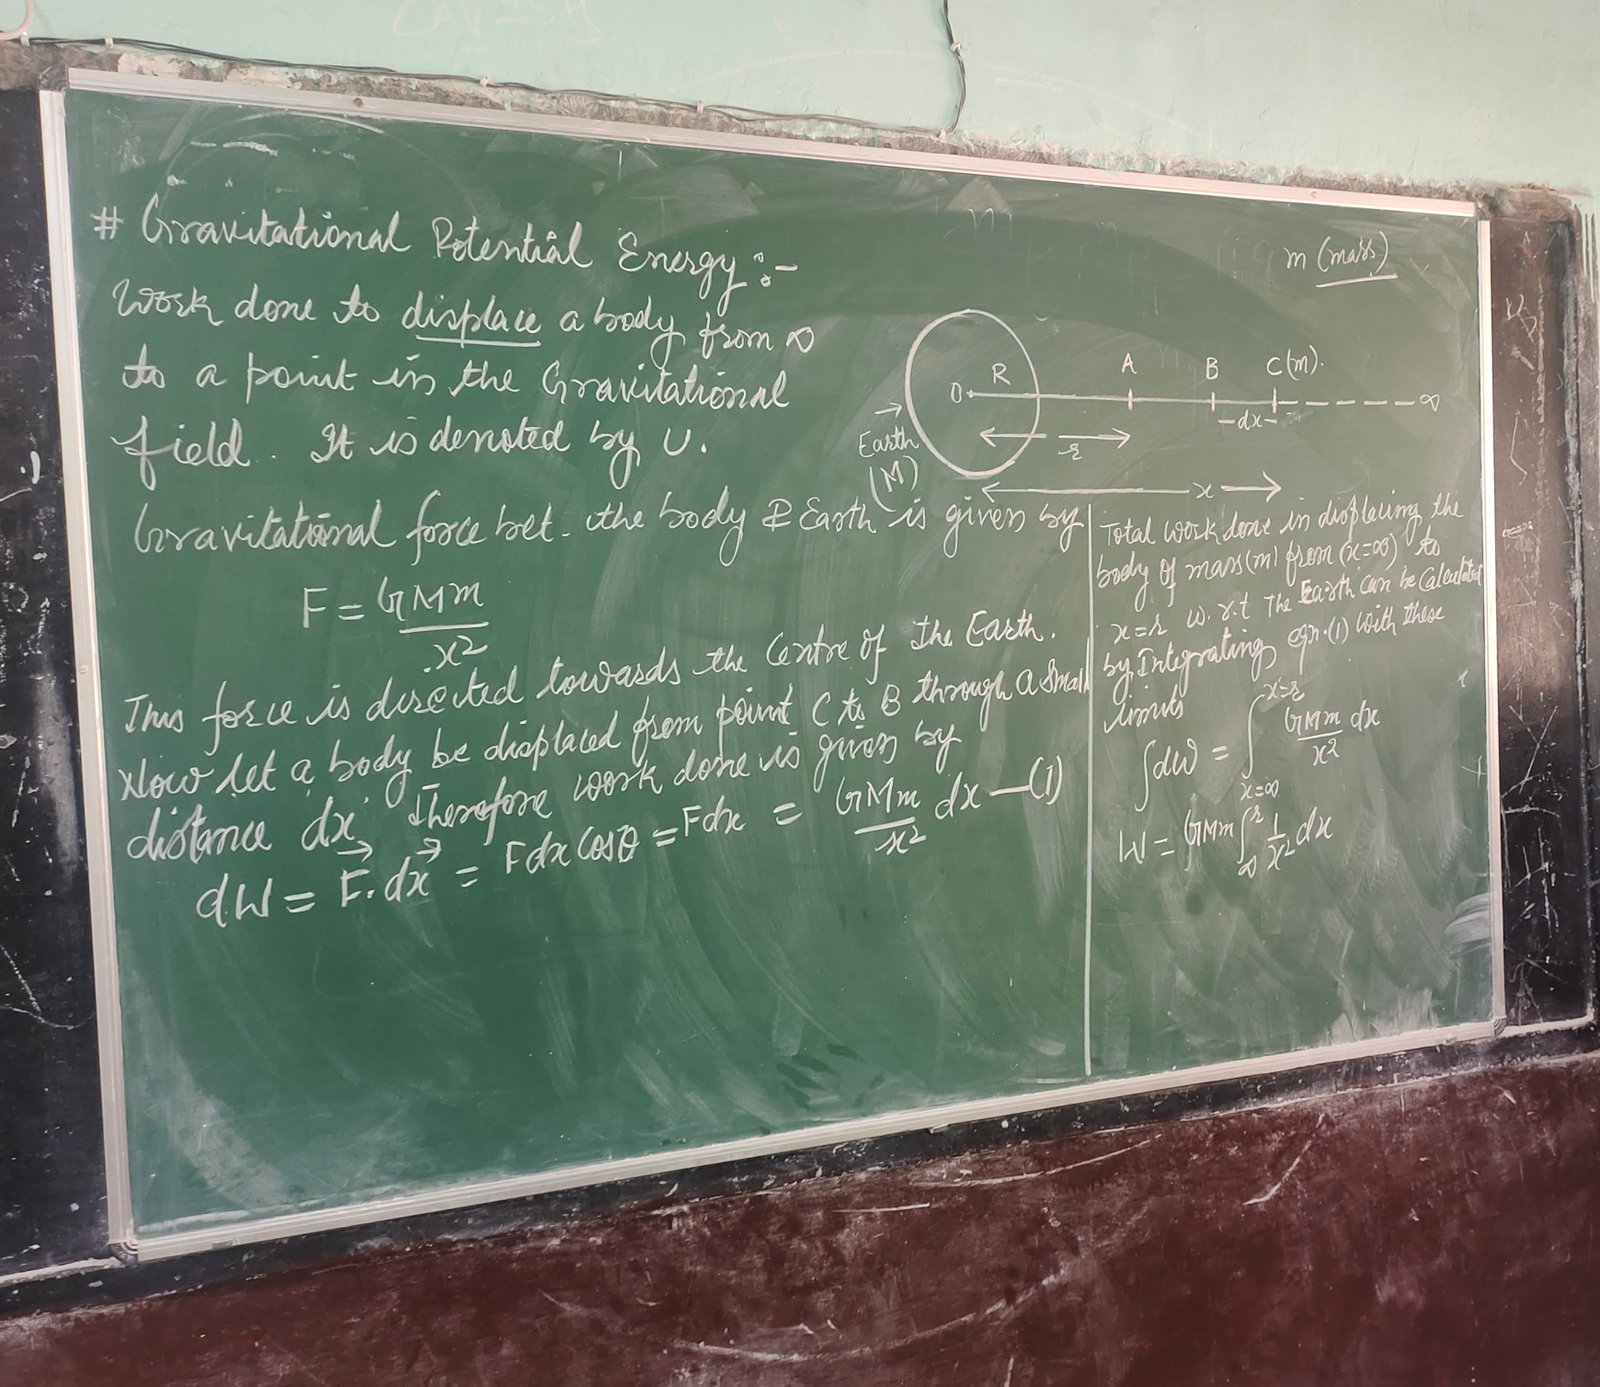 # Gravitational Potential Energy :-
Work done to displace a body from ∞
to a point in the Gravitational
field. It is denoted by U.
m (mass)
O R A B C(m). ∞
-dx-
r
Earth
(M)
x
Gravitational force bet. the body & Earth is given by
F = GMm / x²
This force is directed towards the Centre of the Earth.
Now let a body be displaced from point C to B through a small
distance dx. Therefore work done is given by
dW = F⃗. dx⃗ = Fdx cosθ = Fdx = GMm / x² dx —(1)
Total work done in displacing the
body of mass(m) from (x=∞) to
x=r w.r.t The Earth can be Calculated
by Integrating eqn.(1) with these
limits
∫dW = ∫_{x=∞}^{x=r} GMm / x² dx
W = GMm ∫_{∞}^{r} 1 / x² dx